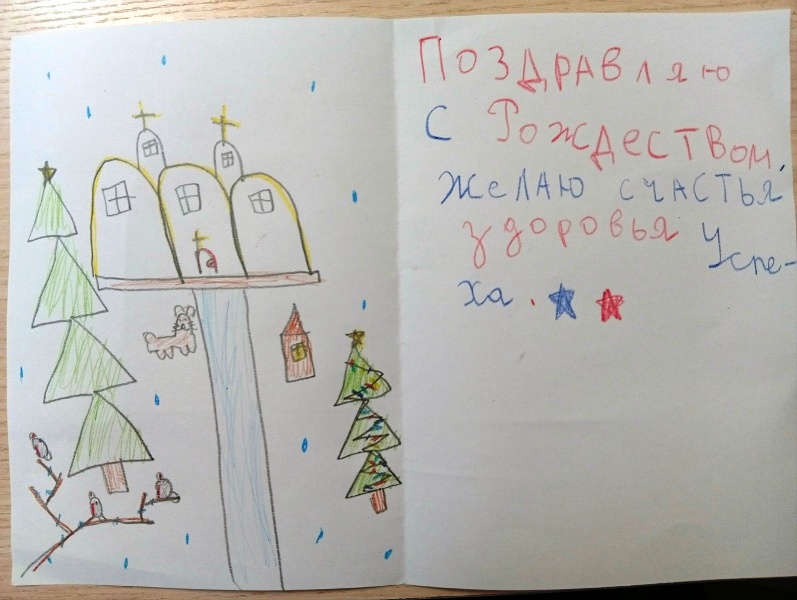 Поздравляю
с Рождеством,
желаю счастья,
здоровья Успе-
ха.